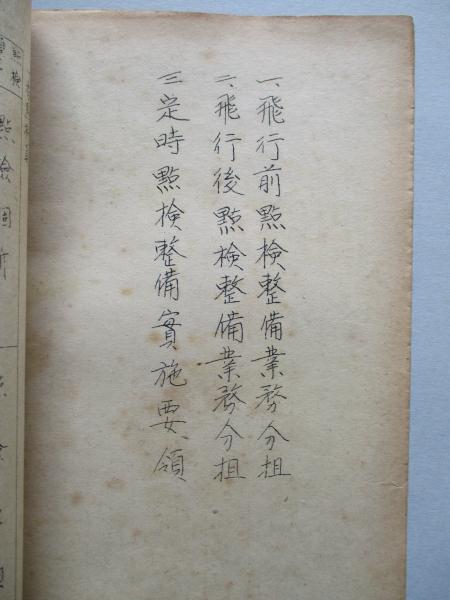 一、飛行前點檢整備業務分担
二、飛行後點檢整備業務分担
三、定時點檢整備實施要領
點檢
點檢箇所